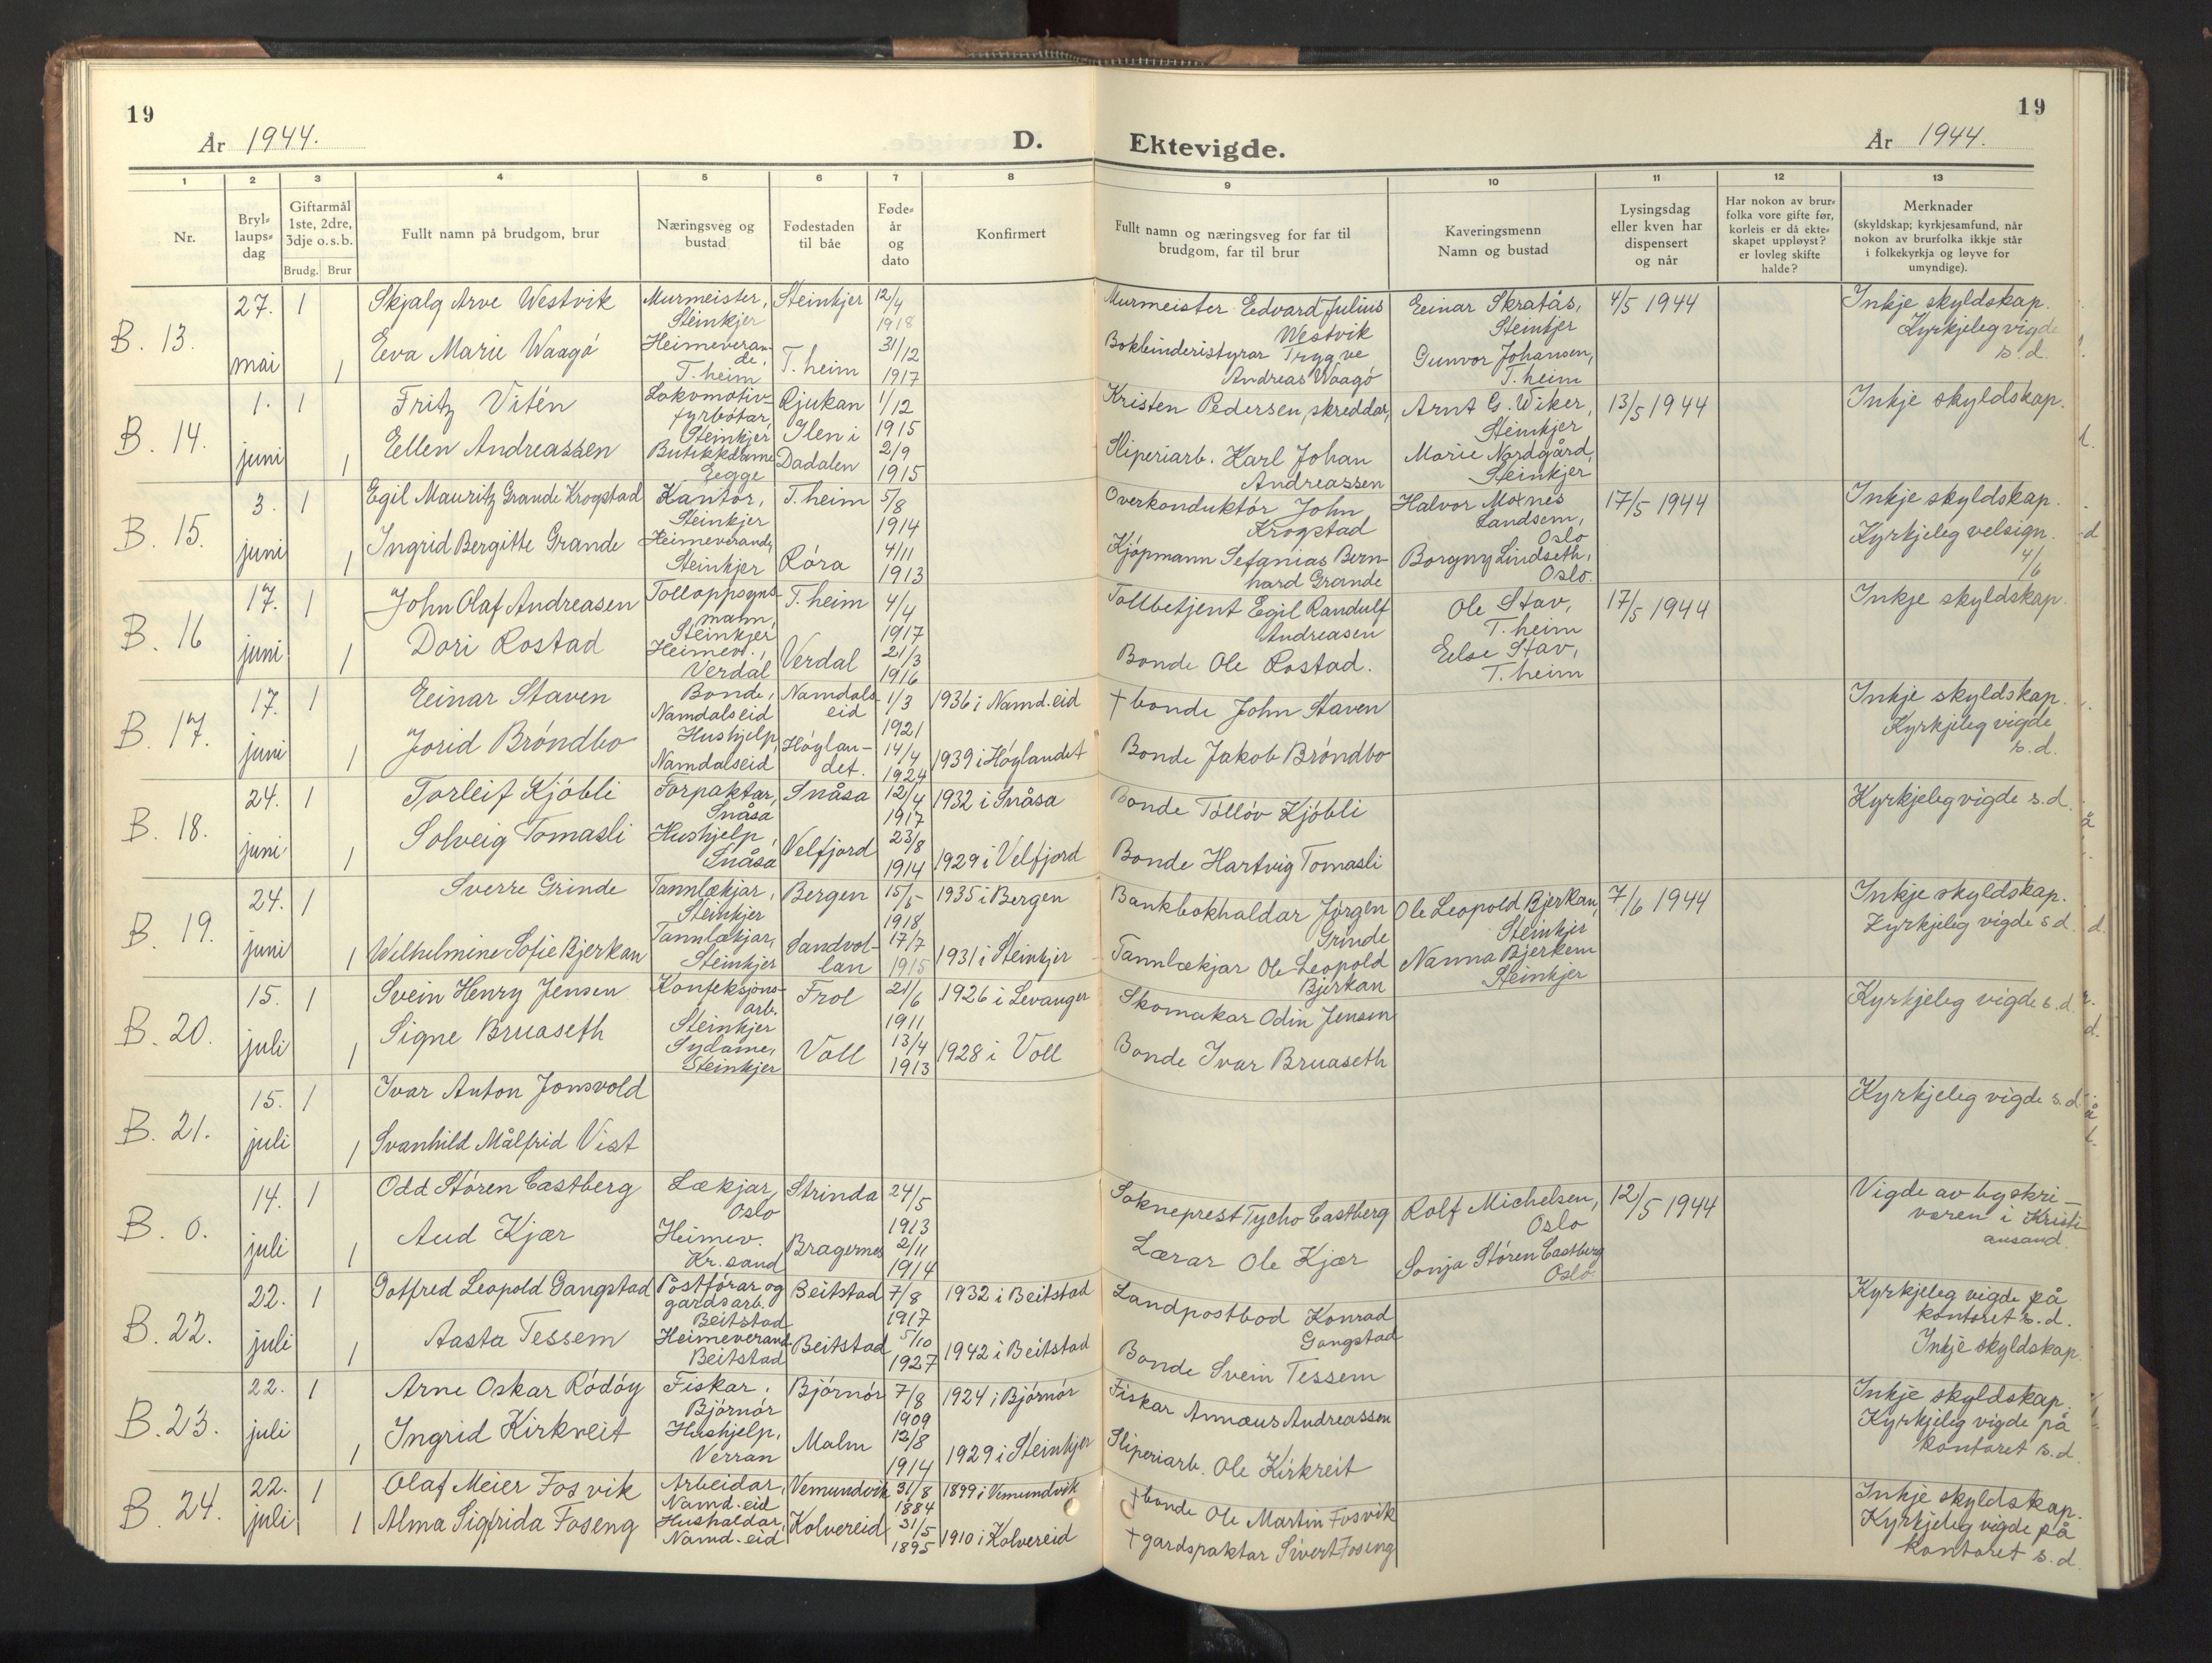 19
År 1944.
D.
Ektevigde.
År 1944.
19
1
2
3
4
5
6
7
8
9
10
11
12
13
Nr.
Bryl-
laups-
dag
Giftarmål
1ste, 2dre,
3dje o. s. b.
Brudg. Brur
Fullt namn på brudgom, brur
Næringsveg og
bustad
Fødestaden
til båe
Føde-
år
og
dato
Konfirmert
Fullt namn og næringsveg for far til
brudgom, far til brur
Kaveringsmenn
Namn og bustad
Lysingsdag
eller kven har
dispensert
og når
Har nokon av brur-
folka vore gifte før,
korleis er då ekte-
skapet uppløyst?
er lovleg skifte
halde?
Merknader
(skyldskap; kyrkjesamfund, når
nokon av brurfolka ikkje står
i folkekyrkja og løyve for
umyndige).
B. 13.
27.
mai
1
1
Skjalg Arve Westvik
Eva Marie Waagó
Murmeister,
Steinkjer
Heimeveran-
de,
T. heim
Steinkjer
T. heim
12/4
1918
31/12
1917
Murmeister Edvard Julius
Westvik
Bokbinderistyrar Trygve
Andreas Waagó
Einar Skratås,
Steinkjer
Gunvor Johansen,
T. heim
4/5 1944
Inkje skyldskap.
Kyrkjeleg vigde
s.d.
B. 14.
1.
juni
1
1
Fritz Vitén
Ellen Andreassen
Lokomotiv-
fyrbótar,
Steinkjer
Butikkdame
Egge
Rjukan
Ilen i
Dadalen
1/12
1915
2/9
1915
Kristen Pedersen, skreddar,
Sliperiarb. Karl Johan
Andreassen
Arnt G. Wiker,
Steinkjer
Marie Nordgård,
Steinkjer
13/5 1944
Inkje skyldskap.
B. 15.
3.
juni
1
1
Egil Mauritz Grande Krogstad
Ingrid Bergitte Grande
Kantor,
Steinkjer
Heimeverande,
Steinkjer
T. heim
Róra
5/8
1914
4/11
1913
Overkonduktór John
Krogstad
Kjópmann Sefanias Bern-
hard Grande
Halvor Moxnes
Landsem,
Oslo
Borgny Lindseth,
Oslo.
17/5 1944
Inkje skyldskap.
Kyrkjeleg velsign.
4/6
B. 16
17.
juni
1
1
John Olaf Andreasen
Dori Rostad
Tolloppsyns-
mann,
Steinkjer
Heimev.,
Verdal
T. heim
Verdal
4/4
1917
21/3
1916
Tollbetjent Egil Randulf
Andreasen
Bonde Ole Rostad.
Ole Stav,
T. heim
Else Stav,
T. heim
17/5 1944
Inkje skyldskap.
B. 17.
17.
juni
1
1
Einar Staven
Jorid Bróndbo
Bonde,
Namdalseid
Hushjelp,
Namdalseid
Namdals
eid
Hóylan-
det.
1/3
1921
14/4
1924
1936 i Namd.eid
1939 i Hóylandet
† bonde John Staven
Bonde Jakob Bróndbo
Inkje skyldskap.
Kyrkjeleg vigde
s.d.
B. 18.
24.
juni
1
1
Torleif Kjóbli
Solveig Tomasli
Forpaktar,
Snåsa
Hushjelp,
Snåsa
Snåsa
Velfjord
12/4
1917
23/8
1914
1932 i Snåsa
1929 i Velfjord
Bonde Tóllóv Kjóbli
Bonde Hartvig Tomasli
Kyrkjeleg vigde s.d.
B. 19.
24.
juni
1
1
Sverre Grinde
Wilhelmine Sofie Bjerkan
Tannlækjar,
Steinkjer
Tannlækjar,
Steinkjer
Bergen
Sandvol-
lan
15/5
1918
17/7
1915
1935 i Bergen
1931 i Steinkjer
Bankbokhaldar Jórgen
Grinde
Tannlækjar Ole Leopold
Bjerkan
Ole Leopold Bjerkan,
Steinkjer
Nanna Bjerkem
Steinkjer
7/6 1944
Inkje skyldskap.
Kyrkjeleg vigde s.d.
B. 20.
15.
juli
1
1
Svein Henry Jensen
Signe Bruaseth
Konfeksjons-
arb.
Steinkjer
Sydame,
Steinkjer
Frol
Voll
21/6
1911
13/4
1913
1926 i Levanger
1928 i Voll
Skomakar Odin Jensen
Bonde Ivar Bruaseth
Kyrkjeleg vigde s.d.
B. 21.
15.
juli
1
1
Ivar Anton Jomsvold
Svanhild Målfrid Vist
Kyrkjeleg vigde s.d.
B. 0.
14.
juli
1
1
Odd Stóren Castberg
Aud Kjær
Lækjar,
Oslo
Heimev.
Kr. sand
Strinda
Bragernes
24/5
1913
2/11
1914
Sokneprest Tycho Castberg
Lærar Ole Kjær
Rolf Michelsen,
Oslo
Sonja Stóren Castberg
Oslo.
12/5 1944
Vigde av byskri-
varen i Kristi-
ansand.
B. 22.
22.
juli
1
1
Gotfred Leopold Gangstad
Aasta Tessem
Postfórar og
gardsarb.
Beitstad
Heimeverand.
Beitstad
Beitstad
Beitstad
7/8
1917
5/10
1927
1932 i Beitstad
1942 i Beitstad
Landpostbod Konrad
Gangstad
Bonde Svein Tessem
Kyrkjeleg vigde på
kontoret s.d.
Inkje skyldskap.
B. 23.
22.
juli
1
1
Arne Oskar Ródóy
Ingrid Kirkreit
Fiskar,
Bjórnór
Hushjelp,
Verran
Bjórnór
Malm
7/8
1909
12/8
1914
1924 i Bjórnór
1929 i Steinkjer
Fiskar Annæus Andreassen
Sliperiarb. Ole Kirkreit
Inkje skyldskap.
Kyrkjeleg vigde på
kontoret s.d.
B. 24.
22.
juli
1
1
Olaf Meier Fosvik
Alma Sigfrida Foseng
Arbeidar,
Namd.eid
Hushaldar,
Namd.eid
Vemundvik
Kolvereid
31/8
1884
31/5
1895
1899 i Vemundvik
1910 i Kolvereid
† bonde Ole Martin Fosvik
† gardspaktar Sivert Foseng
Inkje skyldskap.
Kyrkjeleg vigde på
kontoret s.d.